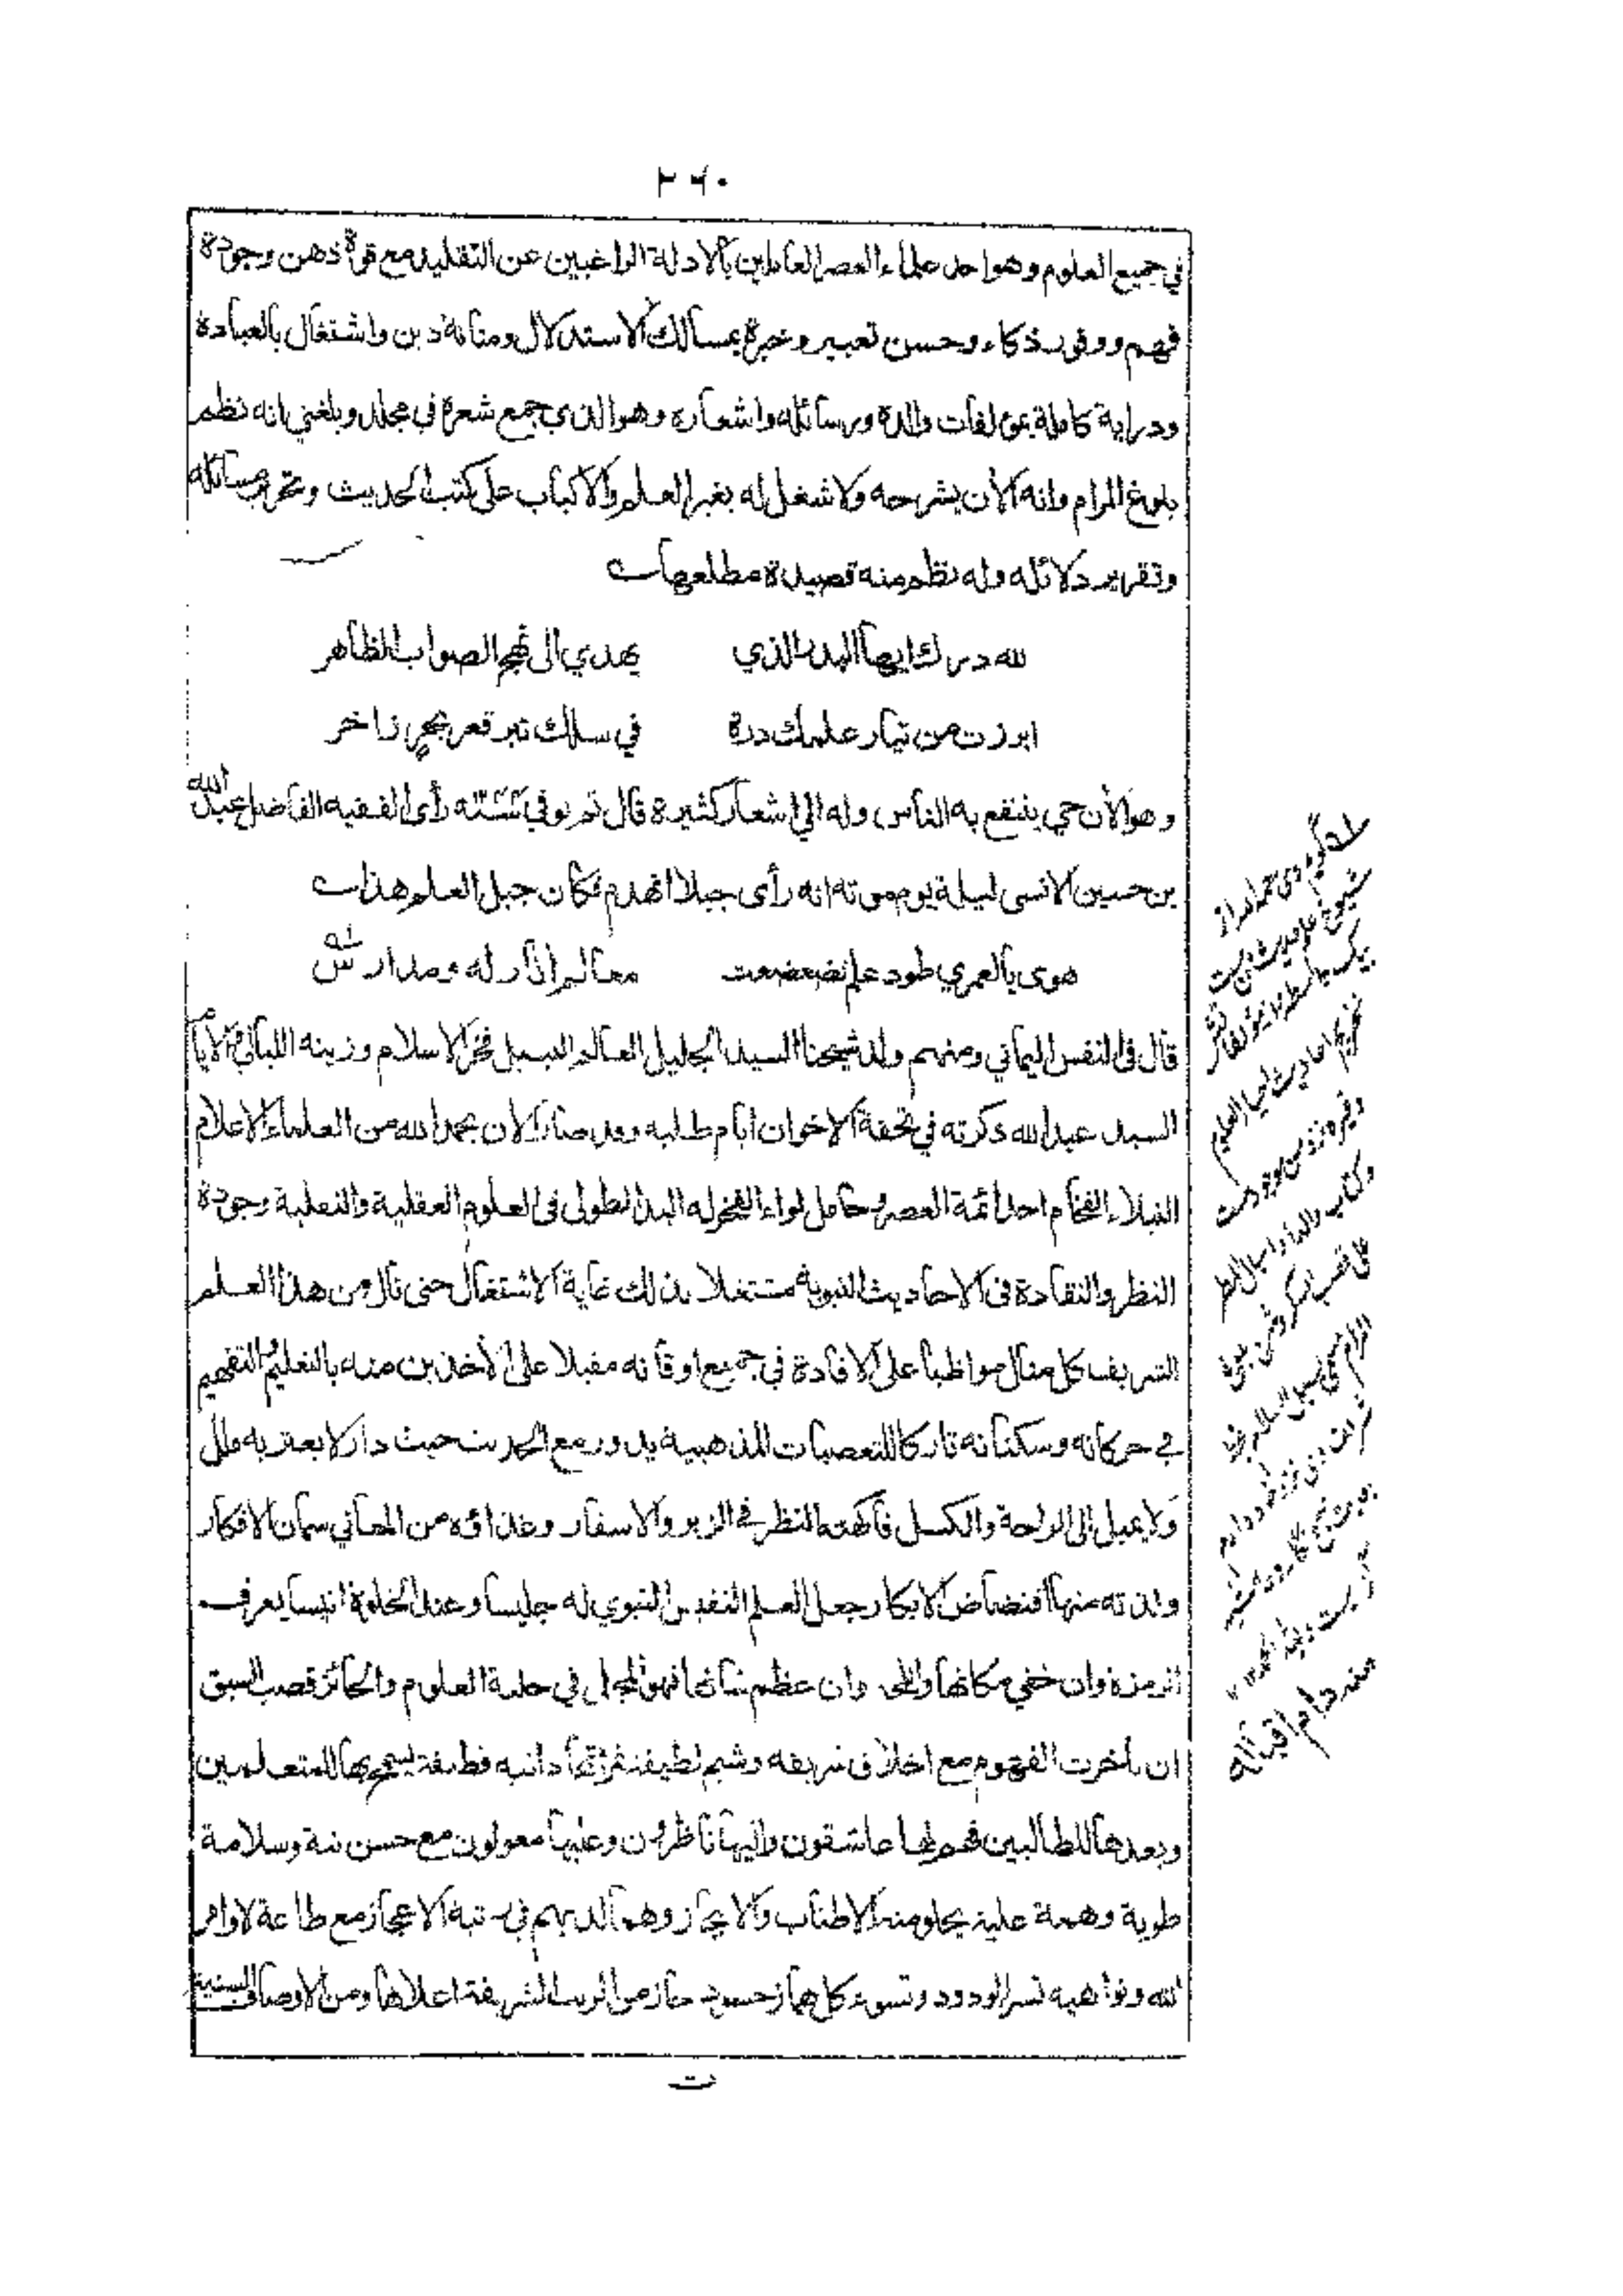 ٢٦٠
في جميع العلوم وهو احد علماء العصر العاملين بالادلة الراغبين عن التقليد مع قوة ذهن وجودة
فهم ووفور ذكاء وحسن تعبير وخبرة بمسالك الاستدلال ومتانة دين واشتغال بالعبادة
ودراية كاملة بمؤلفات والده ورسائله واشعاره وهو الذي جمع شعره في مجلد وبلغني انه نظم
بلوغ المرام وانه الآن يشرحه ولا شغل له بغير العلم والاكباب على كتب الحديث وتحرير مسائله
وتقرير دلائله وله نظم منه قصيدة مطلعها
لله درك ايها البدر الذي يهدي الى نهج الصواب الظاهر
ابرزت من تيار علمك درة في سلك تبر قعر بحر زاخر
وهو الآن حي ينتفع به الناس وله الي اشعار كثيرة قال ثم توفي سنة رأى الفقيه الفاضل عبد الله
بن حسين الانسي ليلة يوم موته انه رأى جبلا انهدم فكان جبل العلم هذا
هوى يالعمري طود علم تضعضعت معالم آثار له ومدارسه
قال في النفس اليماني ومنهم ولد شيخنا السيد الجليل العالم النبيل فخر الاسلام وزينه الليالي والايام
السيد عبد الله ذكرته في تحفة الاخوان ايام طلبه وقد صار الآن بحمد الله من العلماء الاعلام
النبلاء الفخام احد ائمة العصر وحامل لواء الفخر له اليد الطولى في العلوم العقلية والنقلية وجودة
النظر والنقادة في الاحاديث النبوية مشتغلا بذلك غاية الاشتغال حتى نال من هذا العلم
الشريف كل منال مواظبا على الافادة في جميع اوقاته مقبلا على الآخذين منه بالتعليم والتفهيم
في حركاته وسكناته تاركا للتعصبات المذهبية يدور مع الحديث حيث دار لا يعتريه ملل
ولا يميل الى الراحة والكسل فاكهته النظر في الزبر والاسفار وغذاؤه من المعاني سمان الافكار
ولذته منها افتضاض الابكار جعل العلم النفيس النبوي له جليسا وعند الخلوة انيسا يعرف
الرمزة وان خفي مكانها وان عظم شانها فهو المجلي في حلبة العلوم والحائز قصب السبق
ان تأخرت الفهوم مع اخلاق شريفه وشيم لطيفة ثمراتها دانيه قطيفة يسمح بها للمتعلمين
ويعدها للطالبين فهم لها عاشقون واليها ناظرون وعليها معولون مع حسن نية وسلامة
طوية وهمة علية يحلو منه الاطناب والايجاز وهما لديهم في رتبة الاعجاز مع طاعة لاوامر
الله ونواهيه تسر الودود وتسوء كل هماز حسود حاز من الرتب الشريفة اعلاها ومن الاوصاف السنية